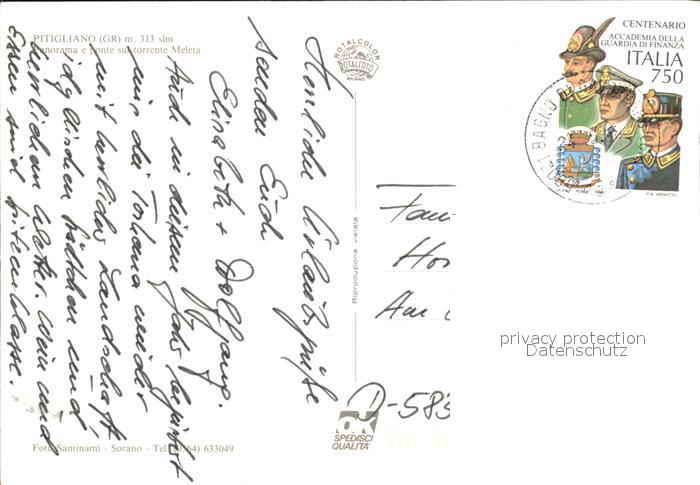 PITIGLIANO (GR) m. 313 slm
Panorama e ponte sul torrente Meleta
Herzliche Urlaubsgrüße
senden Euch
Elisabeth + Wolfgang.
Auch in diesem Jahr
uns die Toskana wieder
mit herrlicher Landschaft,
idyllischen Städtchen und
herrlichem Wetter. Wein und
Essen sind Spitzenklasse.
Foto Santinami - Sorano - Tel. (0564) 633049
ROTALCOLOR
ROTALFOTO
MILANO
Riproduzione vietata
OK
SPEDISCI
QUALITÀ
CENTENARIO
ACCADEMIA DELLA
GUARDIA DI FINANZA
ITALIA
750
BAGNO
Fam
Ho
Am
D-583
privacy protection
Datenschutz